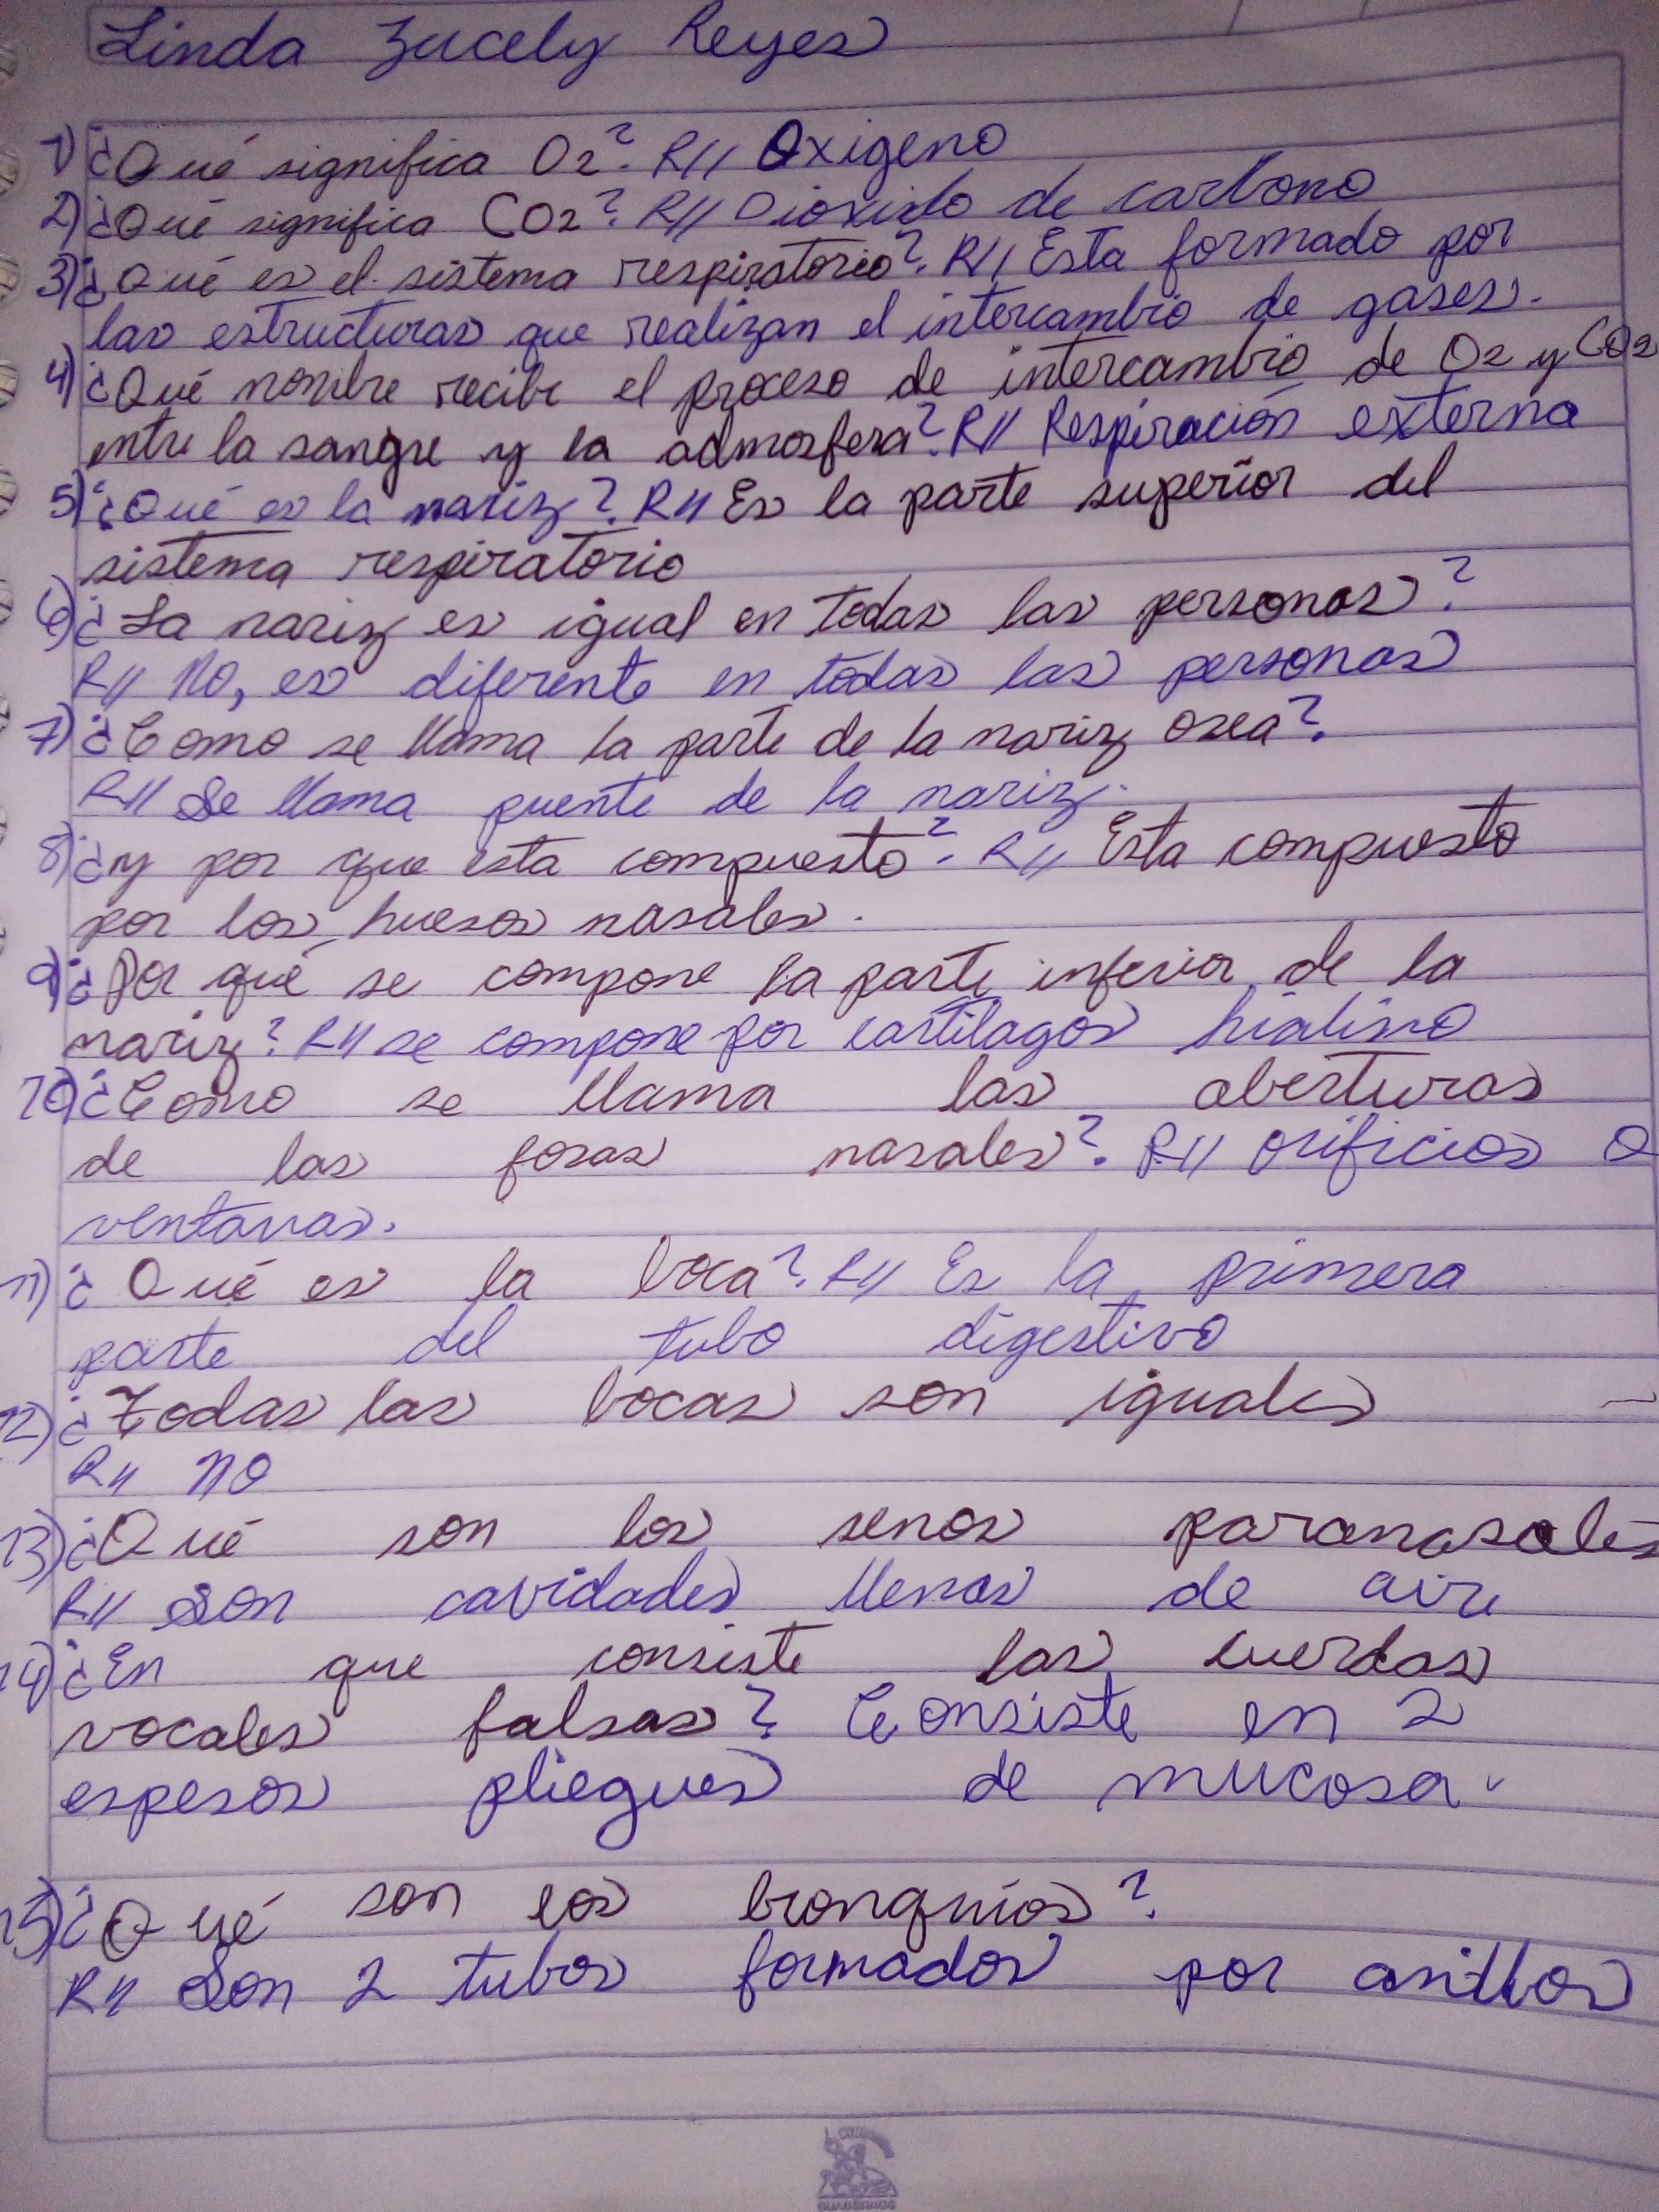 Linda Zucely Reyes
1) ¿Qué significa O2? R// Oxigeno
2) ¿Qué significa CO2? R// Dioxido de carbono
3) ¿Qué es el sistema respiratorio? R// Esta formado por
las estructuras que realizan el intercambio de gases.
4) ¿Qué nombre recibe el proceso de intercambio de O2 y CO2
entre la sangre y la admosfera? R// Respiración externa
5) ¿Qué es la nariz? R// Es la parte superior del
sistema respiratorio
6) ¿La nariz es igual en todas las personas?
R// No, es diferente en todas las personas
7) ¿Como se llama la parte de la nariz osea?
R// Se llama puente de la nariz.
8) ¿y por que esta compuesto? R// Esta compuesto
por los huesos nasales.
9) ¿Por qué se compone la parte inferior de la
nariz? R// se compone por cartilagos hialino
10) ¿Como se llama las aberturas
de las fosas nasales? R// orificios o
ventanas.
11) ¿Qué es la boca? R// Es la primera
parte del tubo digestivo
12) ¿Todas las bocas son iguales
R// No
13) ¿Qué son los senos paranasales
R// Son cavidades llenas de aire
14) ¿En que consiste las cuerdas
vocales falsas? Consiste en 2
espesos pliegues de mucosa.
15) ¿Qué son los bronquios?
R// Son 2 tubos formados por anillos
CUADERNOS